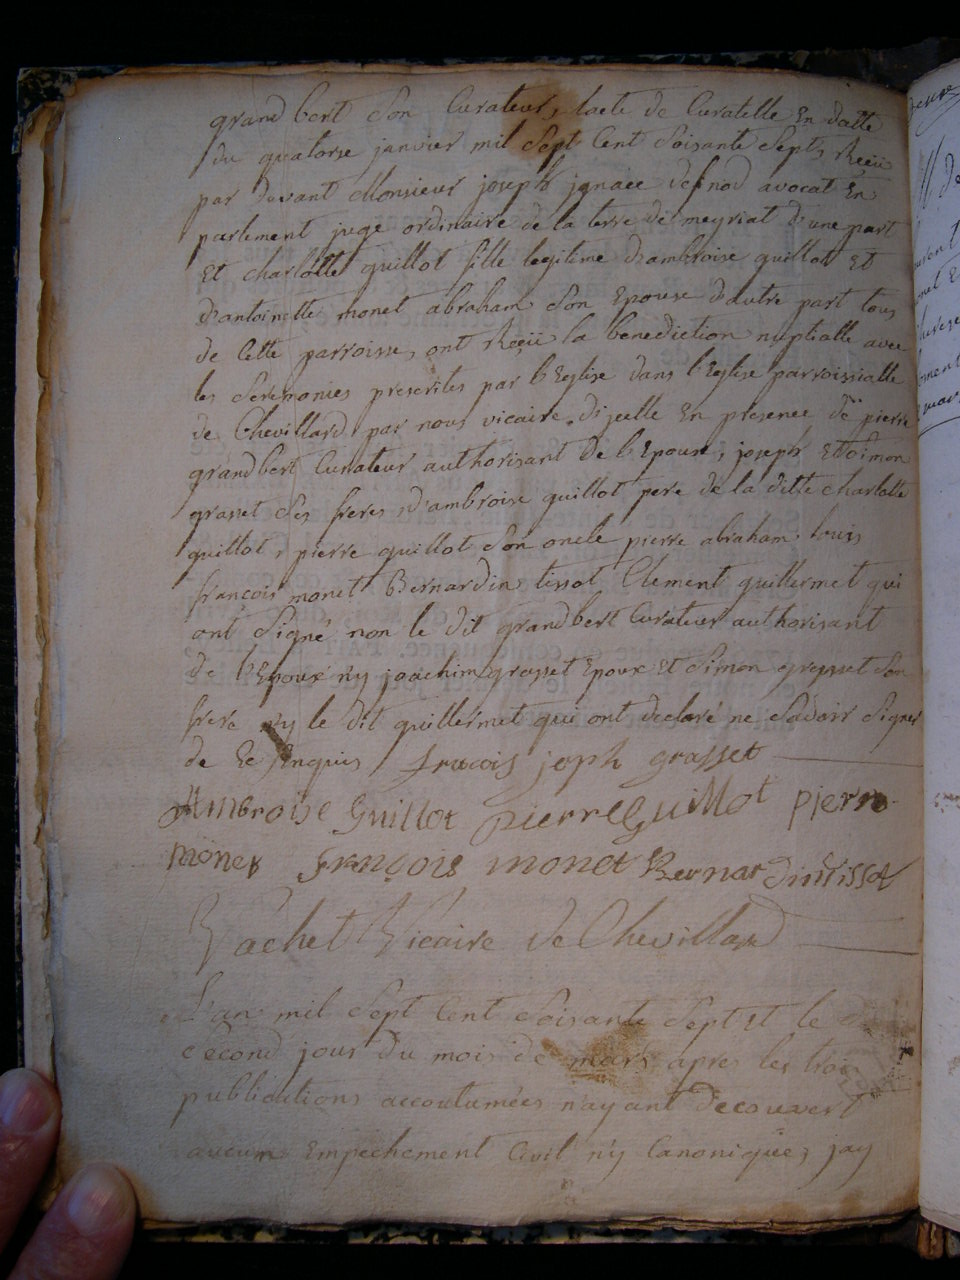 grandbert son Curateur, lacte de Curatelle En datte
du quatorse janvier mil Sept Cent Soisante Sept, Reçü
par devant Monsieur joseph jgnace defnod avocat En
parlement juge ordinaire de la terre de meyriat d'une part
Et charlotte guillot fille legitime d'ambroise guillot Et
d'antoinette monet abraham son Epouse d'autre part tous
de Cette parroisse, ont Reçü la benediction nuptialle avec
les Ceremonies prescrites par l'Eglise dans l'Eglise parroissialle
de Chevillard par nous vicaire d'jcelle En presence de pierre
grandbert Curateur authorisant de l'Epoux, joseph Et Simon
grasset ses freres, d'ambroise guillot pere de la ditte charlotte
guillot, pierre guillot son oncle pierre abraham louis
françois monet Bernardin tissot Clement guillermet qui
ont Signé non le dit grandbert Curateur authorisant
de l'Epoux ny joachim grasset Epoux Et Simon grasset Son
frere ny le dit guillermet qui ont declaré ne Savoir Signer
de Ce Enquis francois joseph grasset
Ambroise Guillot pierre Guillot pierre
monet françois monet Bernardin tissot
Vicaire de Chevillard
L'an mil Sept Cent Soisante Sept Et le
Second jour du mois de mars apres les trois
publications accoutumées n'ayant decouvert
aucun Empechement Civil n'y Canonique, jay